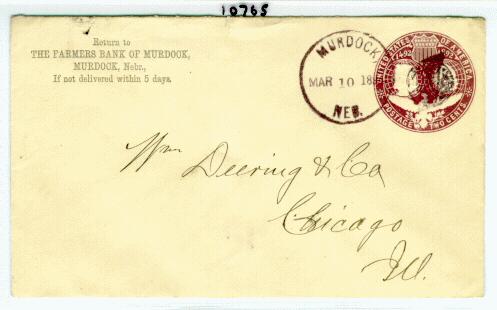 10765
Return to
THE FARMERS BANK OF MURDOCK,
MURDOCK, Nebr.,
If not delivered within 5 days.
MURDOCK,
MAR 10 18
NEB.
UNITED STATES OF AMERICA
POSTAGE TWO CENTS
Wm Deering & Co
Chicago
Ill.